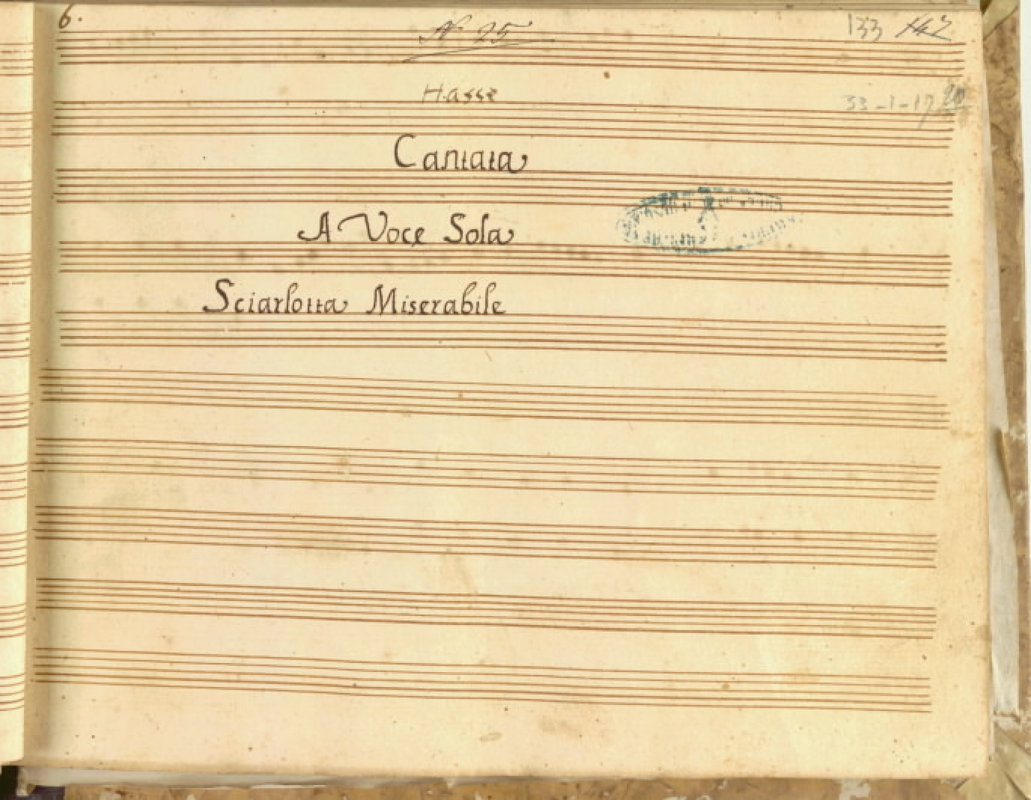 6.
N° 25
133 142
Hasse
33-1-17 20
Cantata
A Voce Sola
Sciarlotta Miserabile